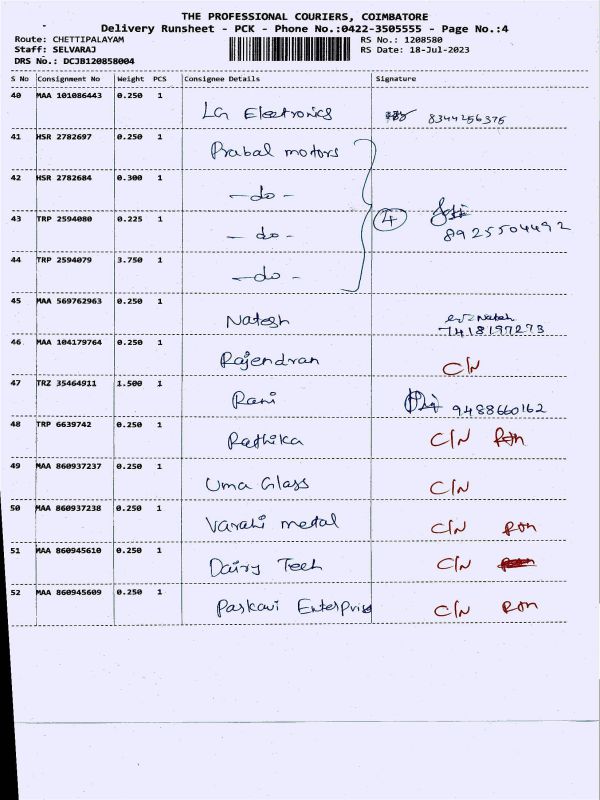 THE PROFESSIONAL COURIERS, COIMBATORE
Delivery Runsheet - PCK - Phone No.:0422-3505555 - Page No.:4
Route: CHETTIPALAYAM RS No.: 1208580
Staff: SELVARAJ RS Date: 18-Jul-2023
DRS No.: DCJB120858004
S No Consignment No Weight PCS Consignee Details Signature
40 MAA 101086443 0.250 1 LG Electronics 8344256375
41 HSR 2782697 0.250 1 Prabal motors
42 HSR 2782684 0.300 1 -do-
43 TRP 2594080 0.225 1 -do- 4 8925504492
44 TRP 2594079 3.750 1 -do-
45 MAA 569762963 0.250 1 Natesh 7418197273
46 MAA 104179764 0.250 1 Rajendran C/N
47 TRZ 35464911 1.500 1 Rani 9488660162
48 TRP 6639742 0.250 1 Rathika C/N
49 MAA 860937237 0.250 1 Uma Glass C/N
50 MAA 860937238 0.250 1 Varahi metal C/N
51 MAA 860945610 0.250 1 Dairy Tech C/N
52 MAA 860945609 0.250 1 Paskavi Enterprise C/N